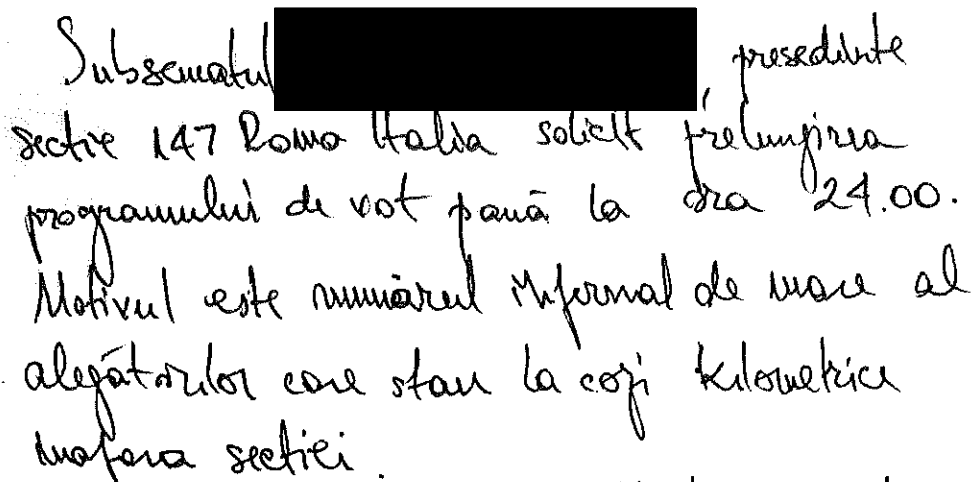 Subsematul , presedinte
sectie 147 Roma Italia solicit prelungirea
programului de vot pană la ora 24.00.
Motivul este numărul infernal de mare al
alegătorilor care stau la cozi kilometrice
inafara sectiei.